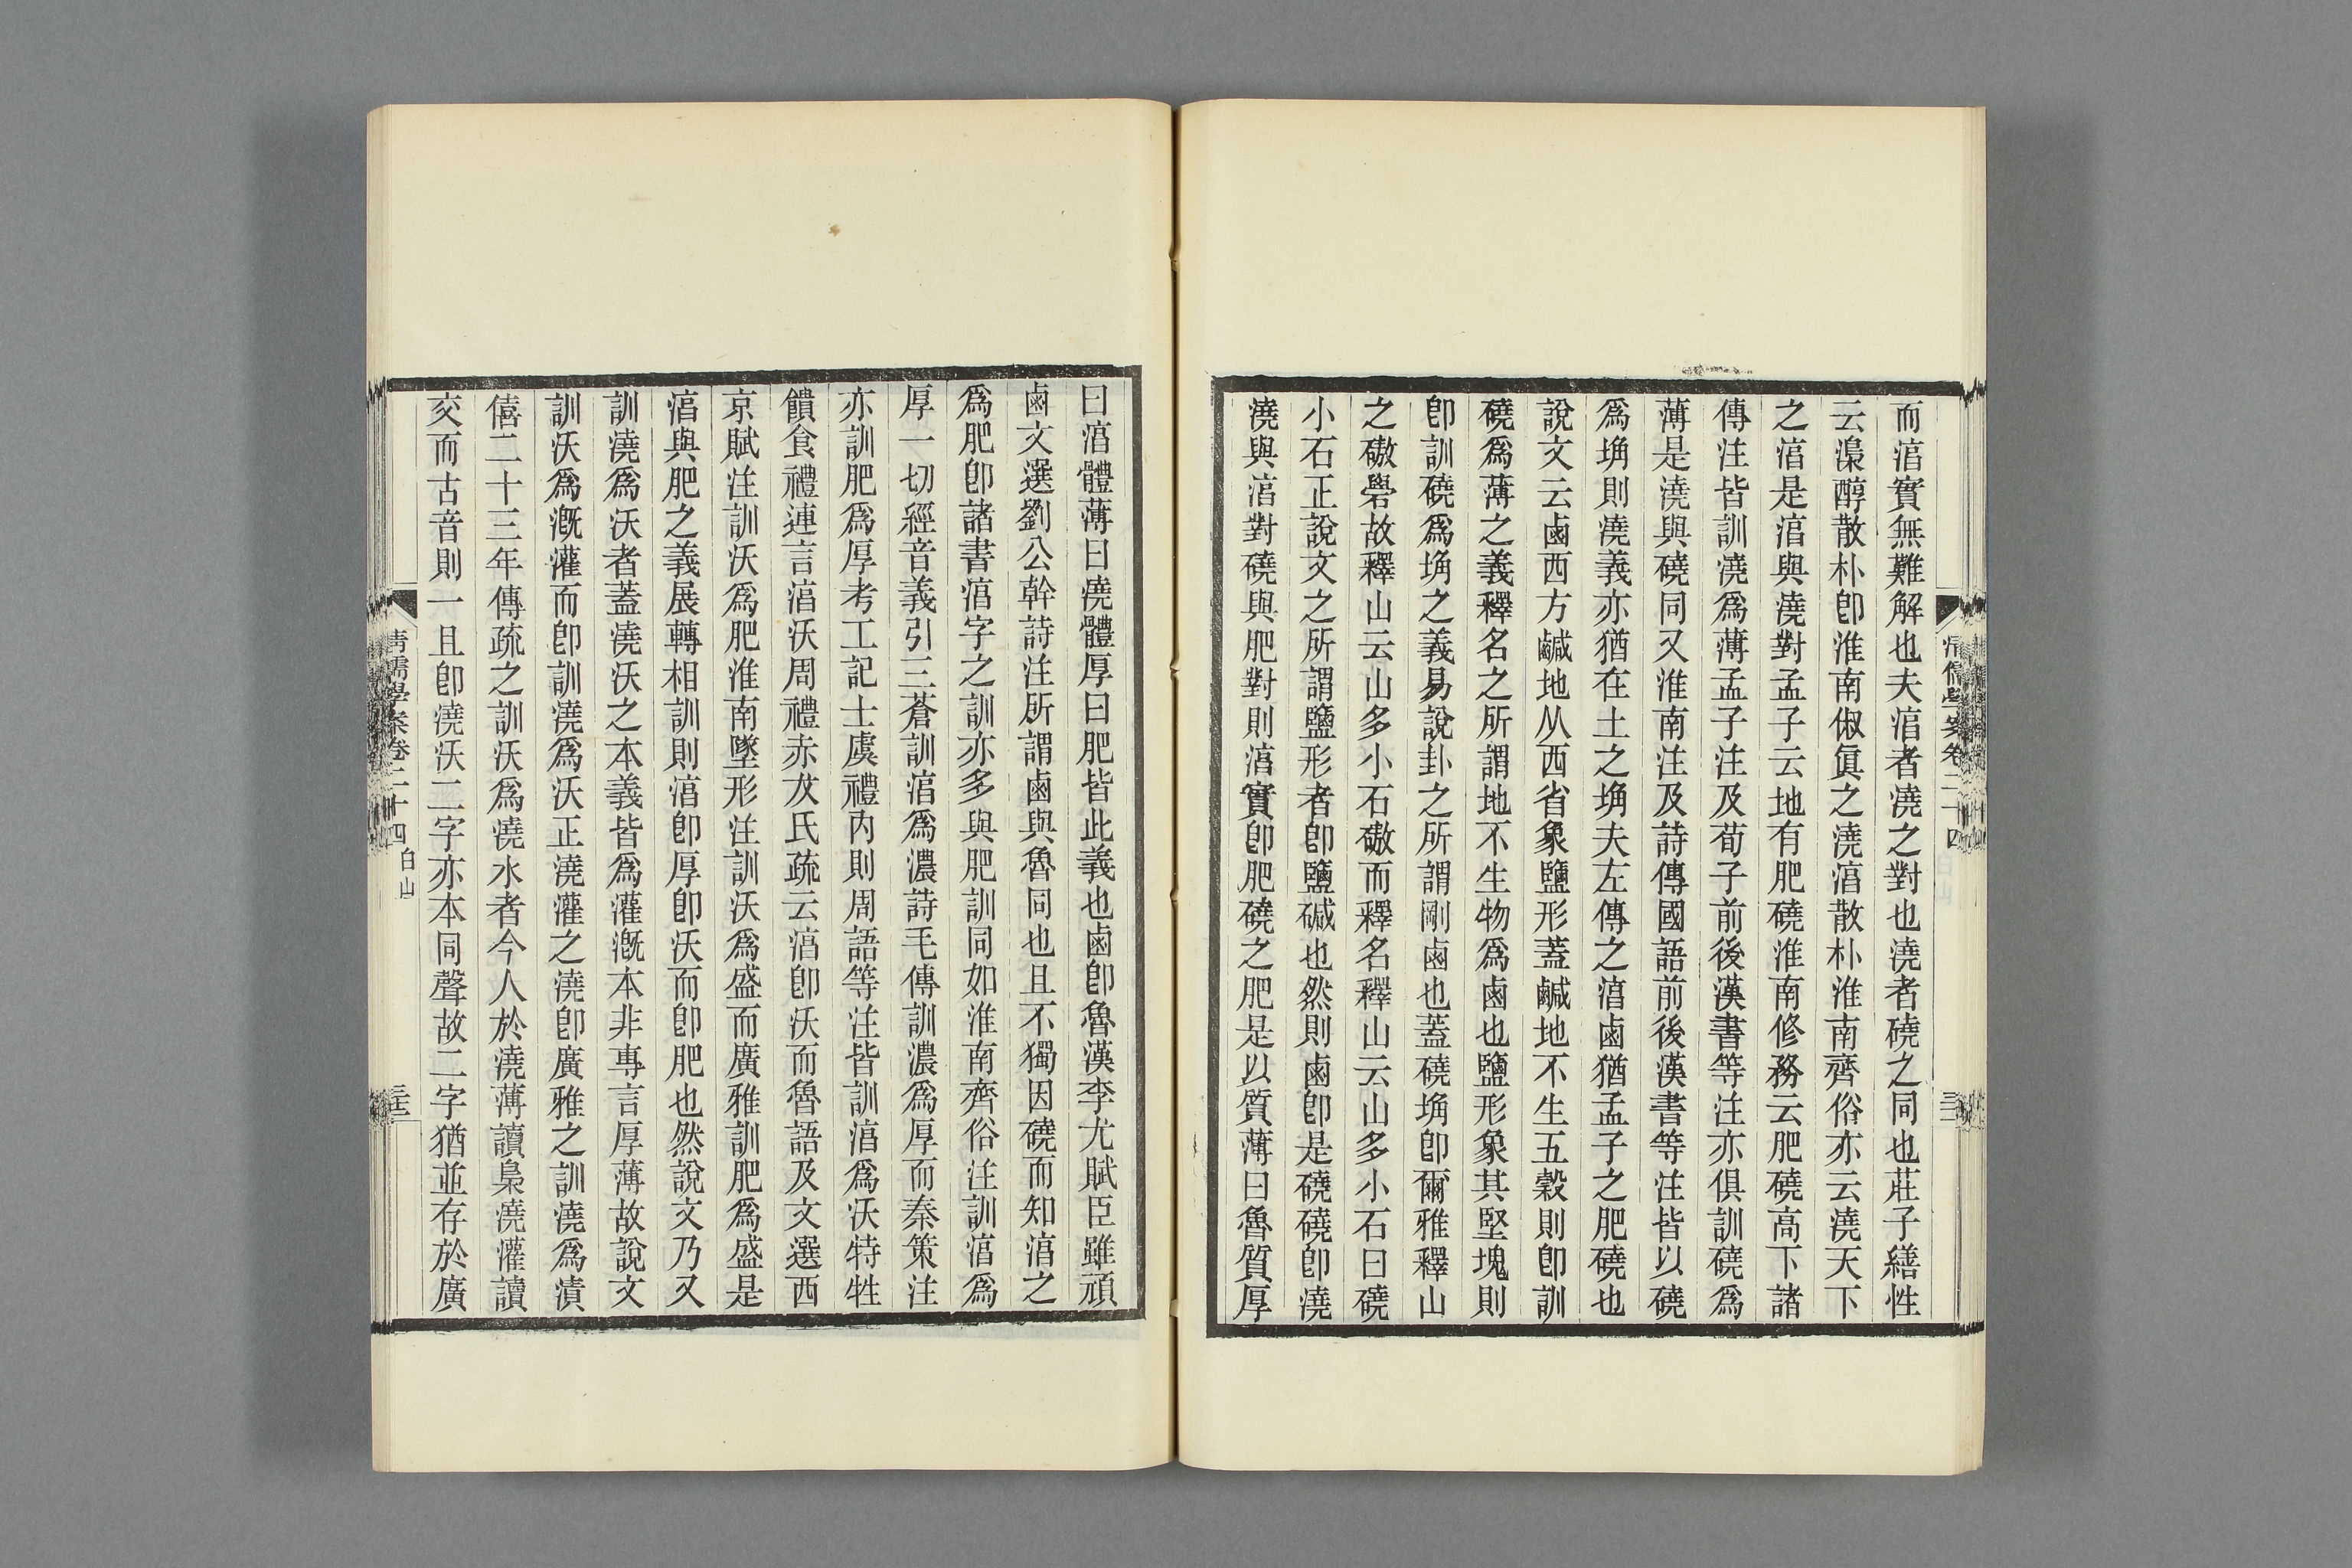 而淳實無難解也夫淳者澆之對也澆者磽之同也莊子繕性
云澆醇散朴卽淮南俶眞之澆淳散朴淮南齊俗亦云澆天下
之淳是淳與澆對孟子云地有肥磽淮南修務云肥磽高下諸
傳注皆訓澆爲薄孟子注及荀子前後漢書等注亦俱訓磽爲
薄是澆與磽同又淮南注及詩傳國語前後漢書等注皆以磽
爲埆則澆義亦猶在土之埆夫左傳之淳鹵猶孟子之肥磽也
說文云鹵西方鹹地从西省象鹽形蓋鹹地不生五穀則卽訓
磽爲薄之義釋名之所謂地不生物爲鹵也鹽形象其堅塊則
卽訓磽爲埆之義易說卦之所謂剛鹵也蓋磽埆卽爾雅釋山
之磝礐故釋山云山多小石磝而釋名釋山云山多小石曰磽
小石正說文之所謂鹽形者卽鹽鹼也然則鹵卽是磽磽卽澆
澆與淳對磽與肥對則淳實卽肥磽之肥是以質薄曰魯質厚
曰淳體薄曰澆體厚曰肥皆此義也鹵卽魯漢李尤賦臣雖頑
鹵文選劉公幹詩注所謂鹵與魯同也且不獨因磽而知淳之
爲肥卽諸書淳字之訓亦多與肥訓同如淮南齊俗注訓淳爲
厚一切經音義引三蒼訓淳爲濃詩毛傳訓濃爲厚而秦策注
亦訓肥爲厚考工記士虞禮內則周語等注皆訓淳爲沃特牲
饋食禮連言淳沃周禮赤犮氏疏云淳卽沃而魯語及文選西
京賦注訓沃爲肥淮南墜形注訓沃爲盛而廣雅訓肥爲盛是
淳與肥之義展轉相訓則淳卽厚卽沃而卽肥也然說文乃又
訓澆爲沃者蓋澆沃之本義皆爲灌漑本非專言厚薄故說文
訓沃爲漑灌而卽訓澆爲沃正澆灌之澆卽廣雅之訓澆爲漬
僖二十三年傳疏之訓沃爲澆水者今人於澆薄讀梟澆灌讀
交而古音則一且卽澆沃二字亦本同聲故二字猶並存於廣
清儒學案卷二十四
三二
清儒學案卷二十四
白山
三三